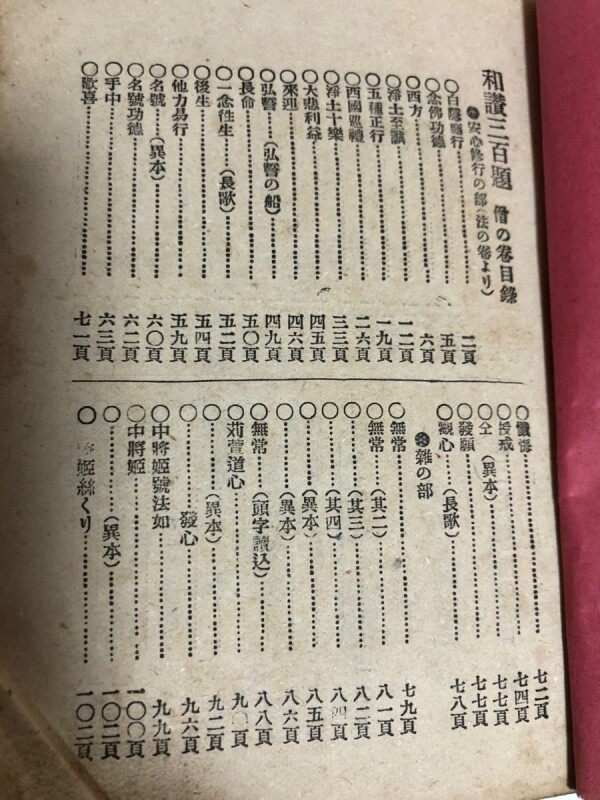 和讃三百題 僧の卷目錄
●安心修行の部(法の卷より)
○念佛功德……五頁
○西方……六頁
○淨土至誠……一二頁
○五種正行……一九頁
○西國巡禮……二六頁
○淨土十樂……三三頁
○大悲利益……四五頁
○來迎……四六頁
○弘誓……(弘誓の船)……四九頁
○長命……五〇頁
○一念往生……(長歌)……五二頁
○後生……五四頁
○他力易行……五九頁
○名號……(異本)……六〇頁
○名號功德……六二頁
○手中……六三頁
○歡喜……七一頁
○懺悔……七二頁
○授戒……七四頁
○仝……(異本)……七七頁
○發願……七七頁
○觀心……(長歌)……七八頁
●雜の部
○無常……七九頁
○無常……(其二)……八一頁
○……(其三)……八二頁
○……(其四)……八四頁
○……(異本)……八五頁
○……(異本)……八六頁
○無常……(頭字讀込)……八八頁
○苅萱道心……九〇頁
○……(異本)……九二頁
○……發心……九六頁
○中將姬號法如……九九頁
○中將姬……一〇〇頁
○……(異本)……一〇二頁
○姬絲くり……一〇二頁